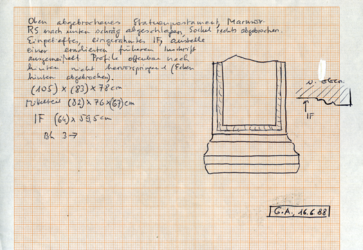 Oben abgebrochenes Statuenpostament, Marmor
RS nach unten schräg abgeschlagen, Sockel rechts abgebrochen
Eingetieftes, eingerahmtes IF, anstelle
einer eradierten früheren Inschrift
ausgemeißelt Profile offenbar nach
hinten nicht herumgezogen
hinten abgebrochen).
(105) × (83) × 78 cm
(82) × 76 × (67) cm
IF (64) × 55,5 cm
Bh 3-7
v. oben
IF
G.A. 16.6.88